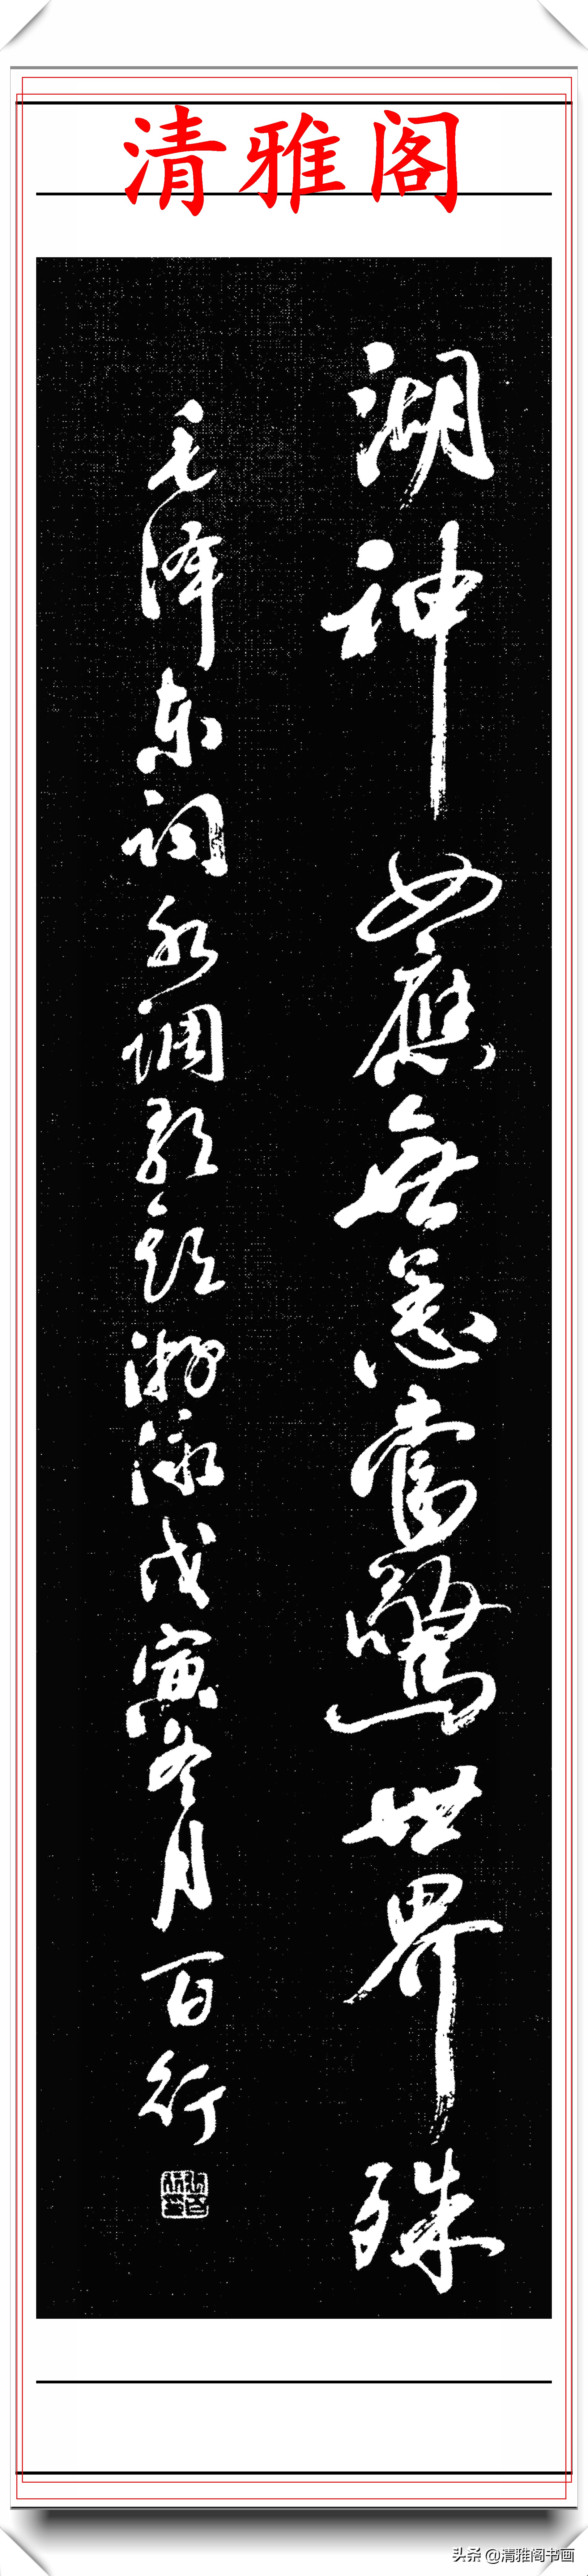 清雅阁
湖神女應無恙當驚世界殊
毛泽东词水调歌头游泳戊寅冬月百行
头条 @清雅阁书画